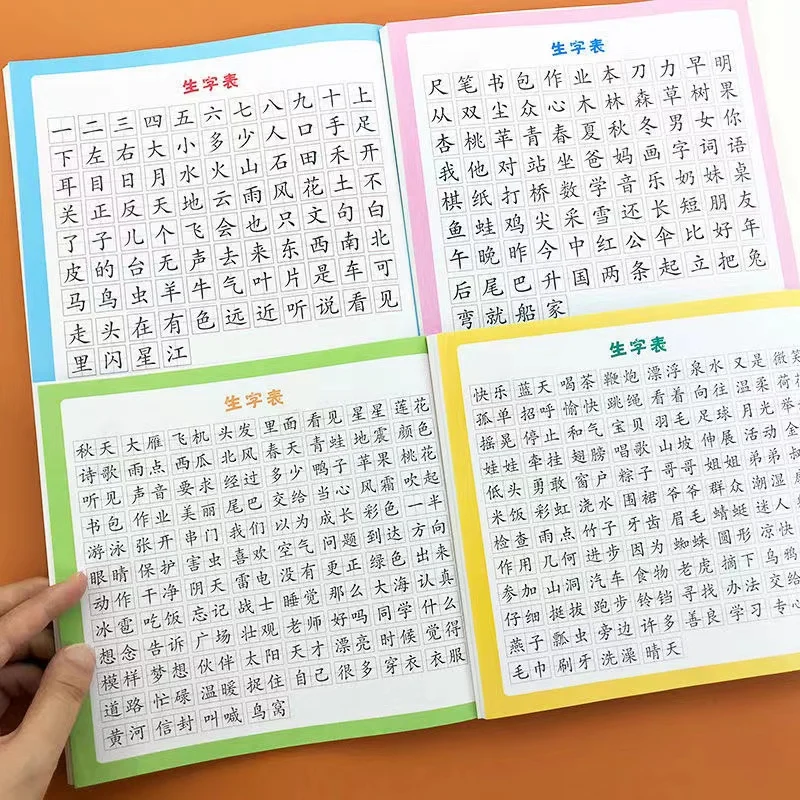 生字表
一 二 三 四 五 六 七 八 九 十 上
下 左 右 大 小 多 少 人 口 手 足
耳 目 日 月 水 火 山 石 田 禾 开
关 正 反 天 地 云 雨 风 花 土 不
了 子 儿 个 飞 会 也 只 文 句 白
皮 的 台 无 声 去 来 东 西 南 北
马 鸟 虫 羊 牛 气 叶 片 是 车 可
走 头 在 有 色 远 近 听 说 看 见
里 闪 星 江
生字表
尺 笔 书 包 作 业 本 刀 力 早 明
从 双 尘 众 心 木 林 森 草 树 果
杏 桃 苹 青 春 夏 秋 冬 男 女 你
我 他 对 站 坐 爸 妈 画 字 词 语
棋 纸 打 桥 数 学 音 乐 奶 妹 桌
鱼 蛙 鸡 尖 采 雪 还 长 短 朋 友
午 晚 昨 今 中 红 公 伞 比 好 年
后 尾 巴 升 国 两 条 起 立 把 兔
弯 就 船 家
生字表
秋天 大雁 飞机 头发 里面 看见 星星 莲花
诗歌 雨点 西瓜 北风 春天 青蛙 地震 颜色
听见 声音 要求 经过 多少 鸭子 苹果 桃花
书包 作业 美丽 尾巴 交给 当心 风霜 吹起
游泳 张开 串门 我们 以为 成长 彩色 一半
眼睛 保护 害虫 喜欢 空气 问题 到达 方向
动作 干净 阴天 雷电 没有 更正 绿色 出来
冰雹 吃饭 忘记 战士 睡觉 那么 大海 认真
想念 告诉 广场 壮观 老师 好吗 同学 什么
模样 梦想 伙伴 太阳 天才 漂亮 时候 觉得
道路 忙碌 温暖 捉住 自己 很多 穿衣 衣服
黄河 信封 叫喊 鸟窝
生字表
快乐 蓝天 喝茶 鞭炮 漂浮 泉水 又是 微笑
孤单 招呼 愉快 跳绳 看着 向往 温柔 荷花
摇晃 停止 和气 宝贝 羽毛 足球 月光 举
娃娃 牵挂 翅膀 唱歌 山坡 伸展 活动 金
低头 勇敢 窗户 粽子 哥哥 姐姐 弟弟 叔
米饭 彩虹 浇水 围裙 爷爷 群众 潮湿
检查 雨点 竹子 牙齿 眉毛 蜻蜓 迷人
作用 几何 进步 因为 蜘蛛 圆形 凉快
参加 山洞 汽车 食物 老虎 摘下 乌鸦
仔细 挺拔 跑步 铃铛 寻找 办法 交给
燕子 瓢虫 旁边 许多 善良 学习 专心
毛巾 刷牙 洗澡 晴天